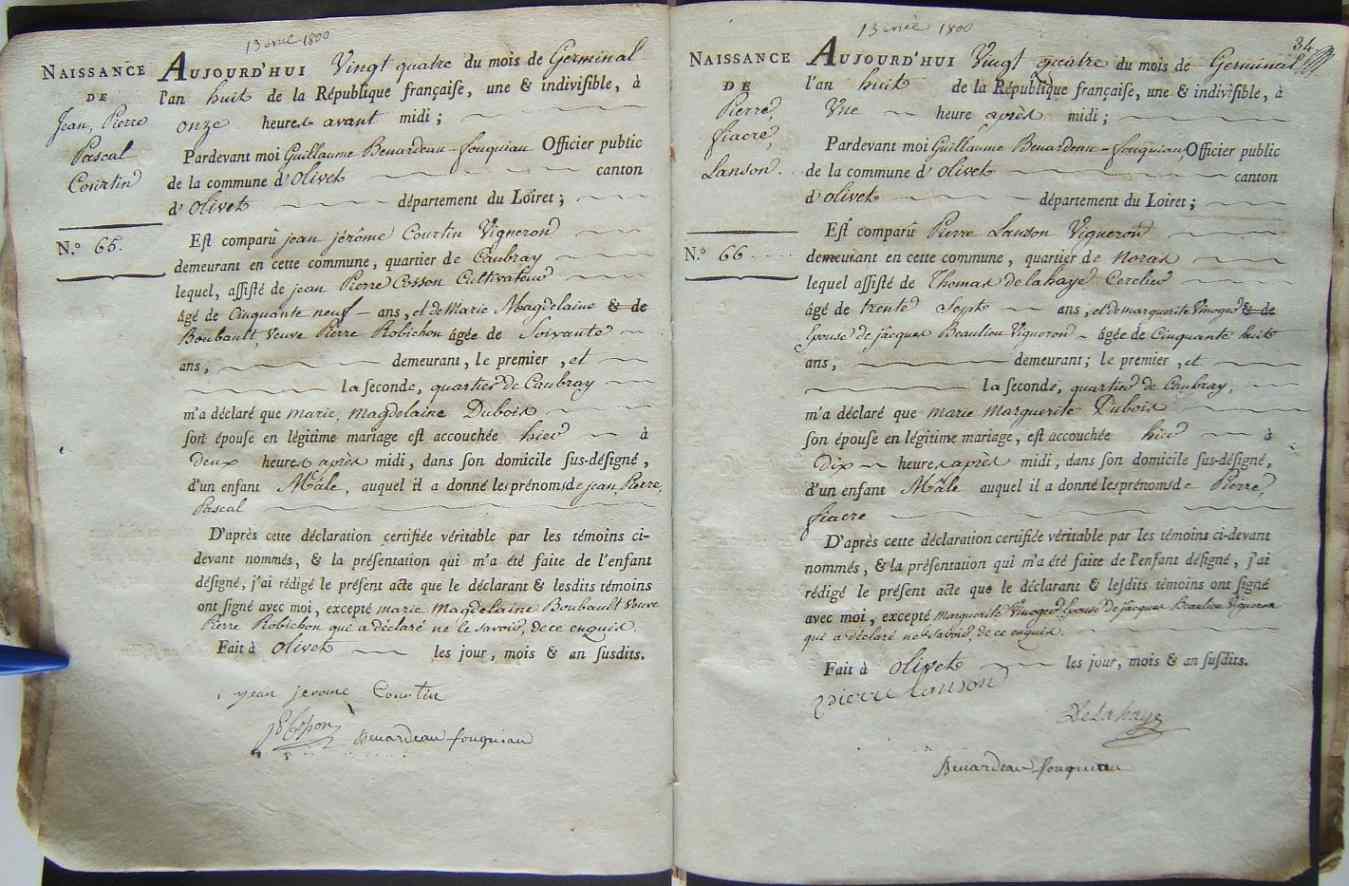 13 avril 1800
NAISSANCE
DE
Jean, Pierre
Pascal
Courtin
N.º 65.
AUJOURD'HUI Vingt quatre du mois de Germinal
l'an huit de la République française, une & indivisible, à
onze heures avant midi ;
Pardevant moi Guillaume Benardeau-fouquiau Officier public
de la commune d'olivet canton
d'olivet département du Loiret ;
Est comparû jean jérôme Courtin Vigneron
demeurant en cette commune, quartier de Caubray
lequel, assisté de jean Pierre Cosson Cultivateur
âgé de Cinquante neuf - ans, et de Marie Magdelaine & de
Boubault, veuve Pierre Robichon âgée de Soixante
ans, demeurant, le premier, et
la seconde, quartier de Caubray
m'a déclaré que marie, magdelaine Dubois
son épouse en légitime mariage est accouchée hier à
deux heures après midi, dans son domicile sus-désigné,
d'un enfant Mâle, auquel il a donné les prénoms de jean, Pierre,
Pascal
D'après cette déclaration certifiée véritable par les témoins ci-
devant nommés, & la présentation qui m'a été faite de l'enfant
désigné, j'ai rédigé le présent acte que le déclarant & lesdits témoins
ont signé avec moi, excepté marie magdelaine Boubault veuve
Pierre Robichon qui a déclaré ne le savoir, de ce enquis.
Fait à olivet les jour, mois & an susdits.
jean jerome Courtin
Benardeau fouquiau
13 avril 1800
34
NAISSANCE
DE
Pierre,
fiacre,
Lanson.
N.º 66
AUJOURD'HUI Vingt quatre du mois de Germinal
l'an huit de la République française, une & indivisible, à
Une heure après midi ;
Pardevant moi Guillaume Benardeau-fouquiau, Officier public
de la commune d'olivet canton
d'olivet département du Loiret ;
Est comparû Pierre Lanson Vigneron
demeurant en cette commune, quartier de noras
lequel assisté de Thomas delahaye Cerclier
âgé de trente Sept ans, et de marguerite Limoger & de
Epouse de jacques Beaulieu Vigneron - âgée de Cinquante huit
ans, demeurant ; le premier, et
la seconde, quartier de Caubray,
m'a déclaré que marie Marguerite Dubois
son épouse en légitime mariage, est accouchée hier à
Dix heures après midi, dans son domicile sus-désigné,
d'un enfant Mâle auquel il a donné les prénoms de Pierre,
fiacre
D'après cette déclaration certifiée véritable par les témoins ci-devant
nommés, & la présentation qui m'a été faite de l'enfant désigné, j'ai
rédigé le présent acte que le déclarant & lesdits témoins ont signé
avec moi, excepté marguerite Limoger Epouse de jacques Beaulieu Vigneron
qui a déclaré ne le savoir, de ce enquis.
Fait à olivet les jour, mois & an susdits.
pierre lanson
Delahaye
Benardeau fouquiau